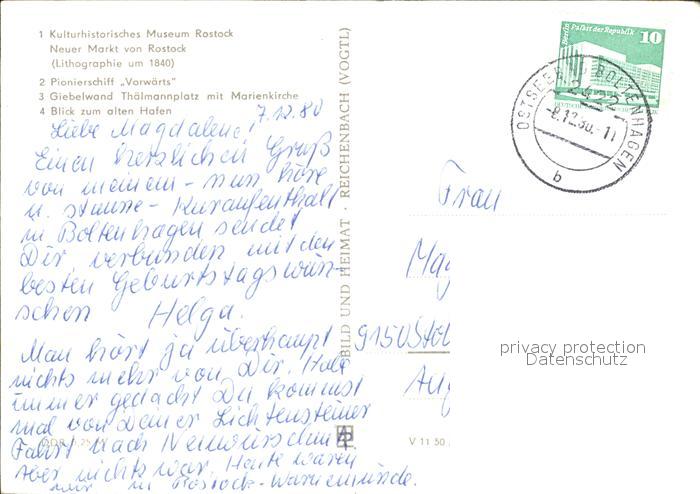 1 Kulturhistorisches Museum Rostock
Neuer Markt von Rostock
(Lithographie um 1840)
2 Pionierschiff „Vorwärts"
3 Giebelwand Thälmannplatz mit Marienkirche
4 Blick zum alten Hafen
7.12.80
Liebe Magdalene!
Einen herzlichen Gruß
von meinem - nun höre
u. staune - Kuraufenthalt
in Boltenhagen sendet
Dir verbunden mit den
besten Geburtstagswün-
schen Helga.
Man hört ja überhaupt
nichts mehr von Dir. Habe
immer gedacht Du kommst
mal von Deiner Lichtensteiner
Fahrt nach Neuwürschnitz
aber nichts war. Heute waren
wir in Rostock-Warnemünde.
BILD UND HEIMAT · REICHENBACH (VOGTL)
Berlin Palast der Republik
10
OSTSEEBAD BOLTENHAGEN
2425
-8.12.80.-11
b
Frau
Mag
9150 Stol
Aug
privacy protection
Datenschutz
V 11 50